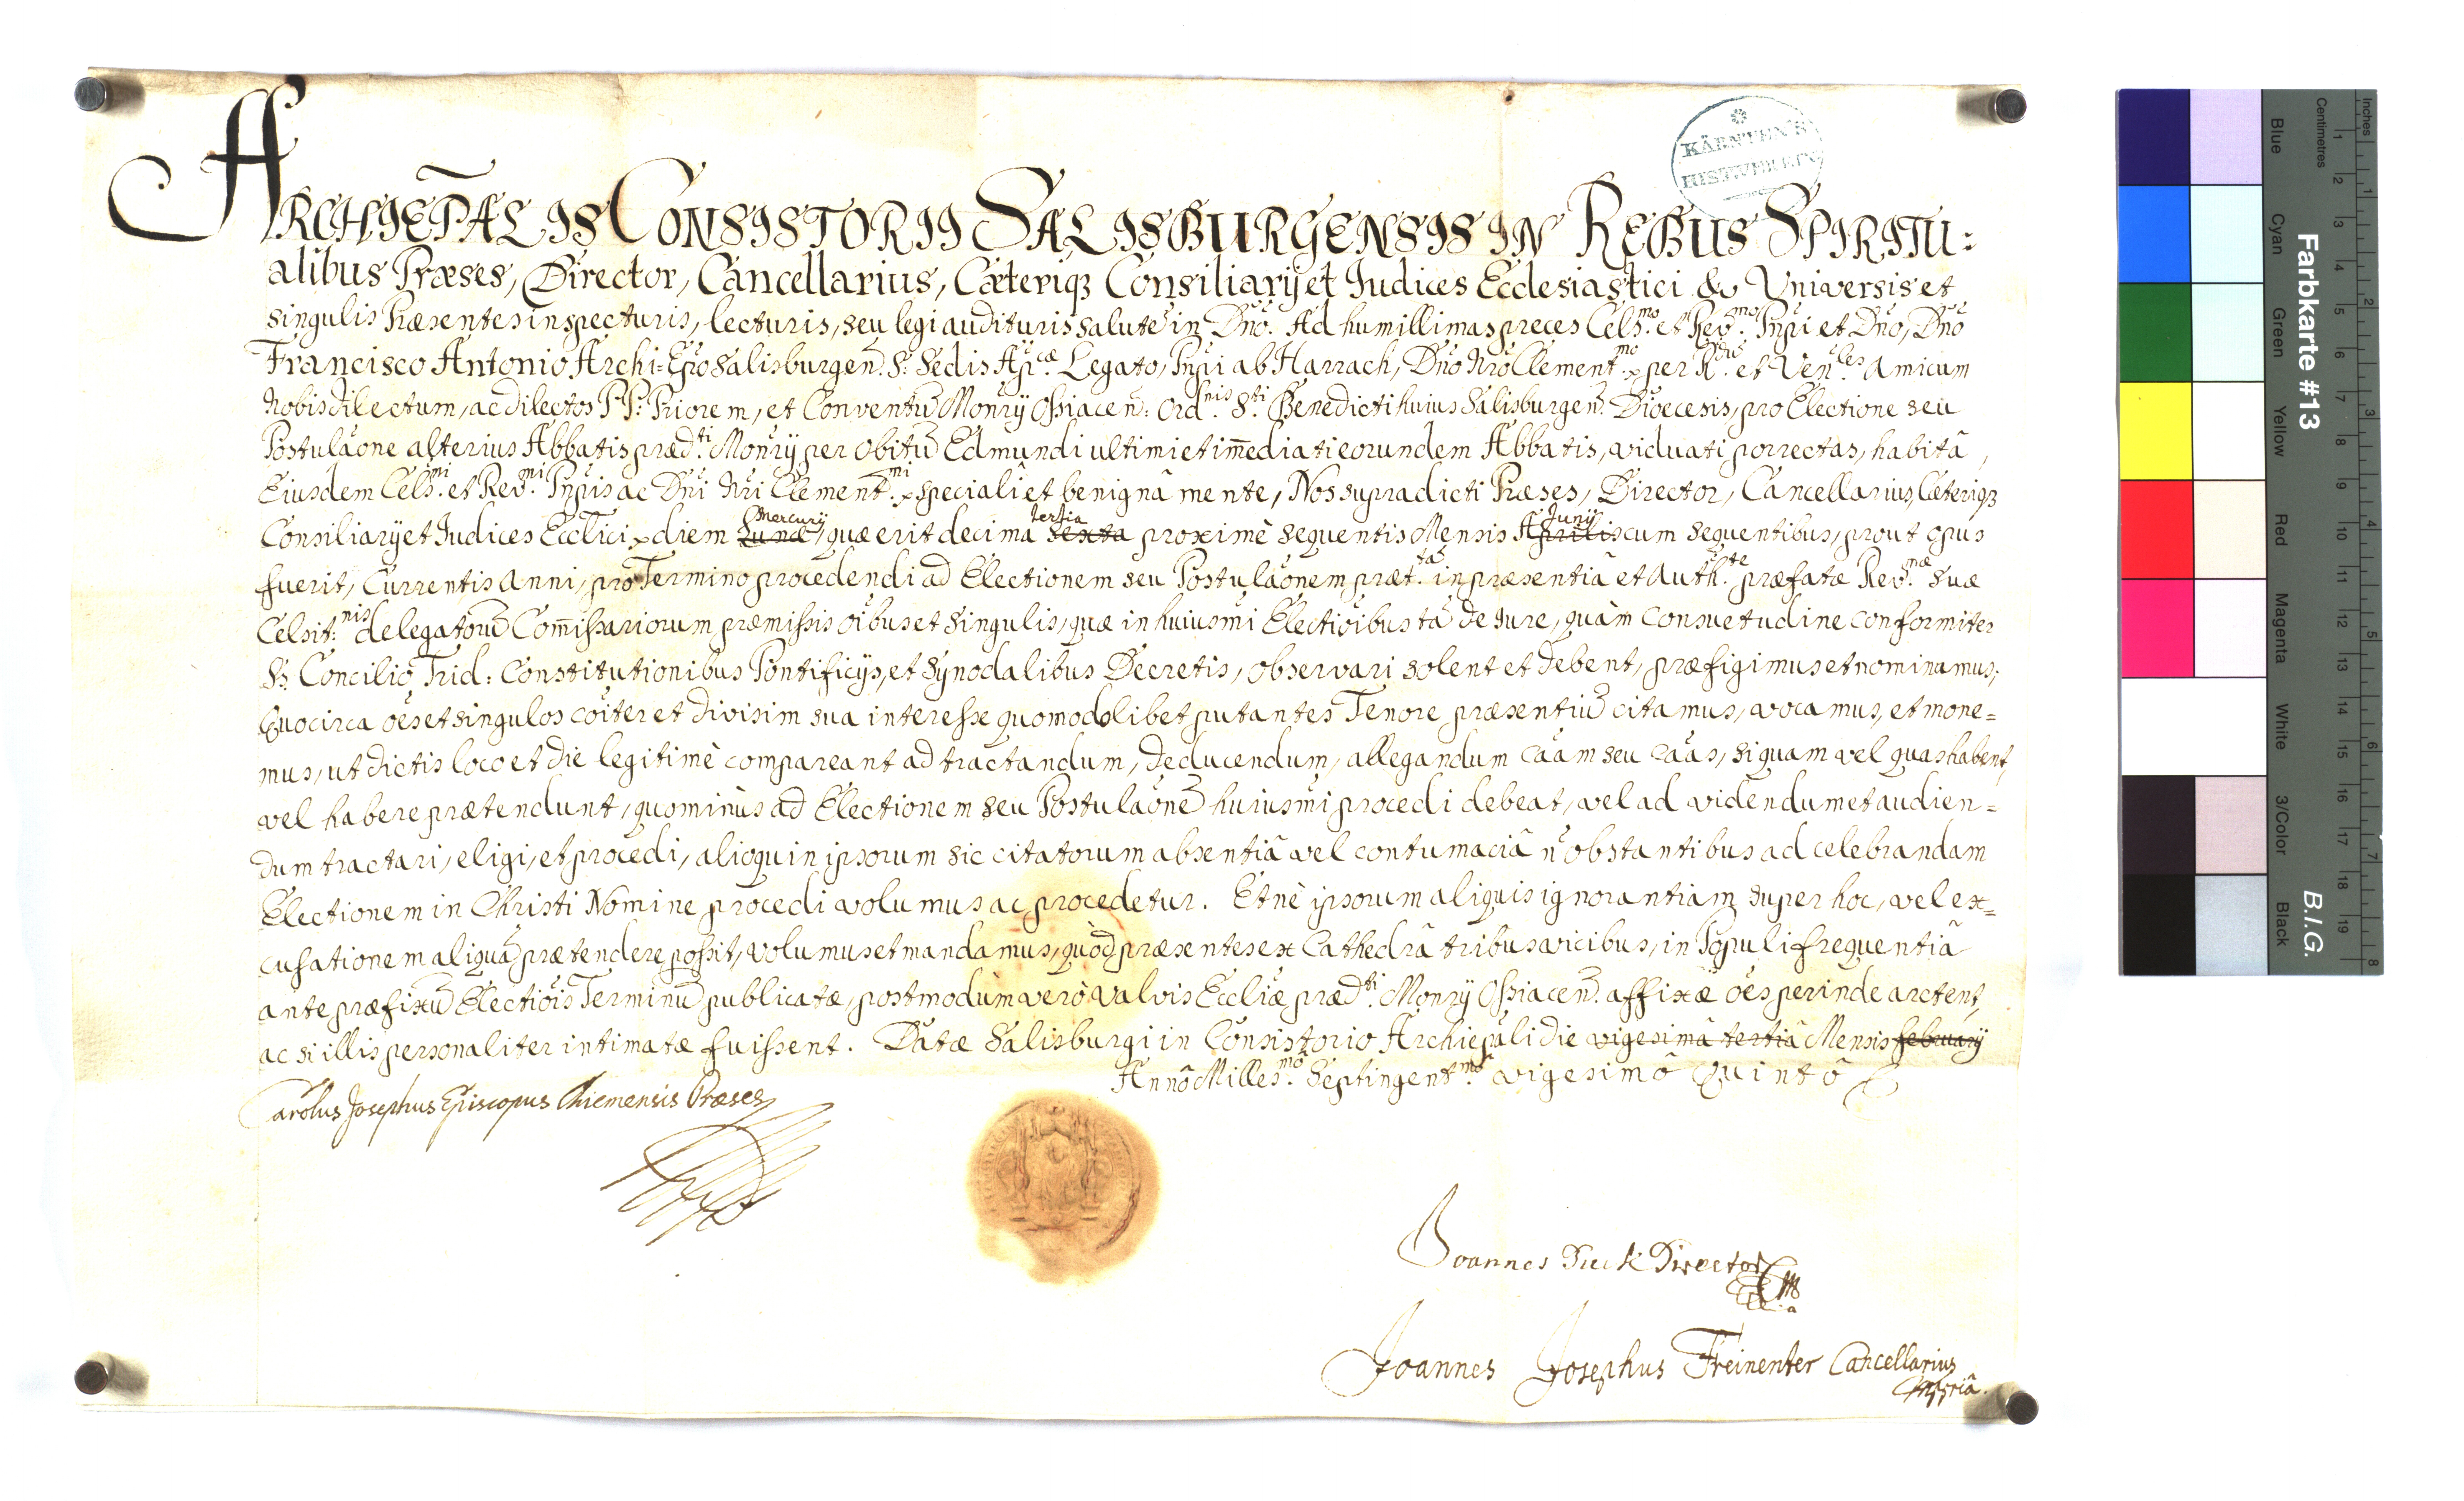 KÄRNTEN'S
HIST.VEREIN
ARCHIEP̄ALIS CONSISTORII SALISBURGENSIS IN REBUS SPIRITU=
alibus Præses, Director, Cancellarius, Cæteriqз Consiliarij et Iudices Ecclesiastici & Universis et
singulis Præsentes inspecturis, lecturis, seu legi audituris salutē in Dno. Ad humillimas preces Cels.mo et Rev.mo Pnpi et Dno, Dno
Francisco Antonio Archi=Epo Salisburgen: S: Sedis Ap.cæ Legato, Pnpi ab Harrach, Dno Nro Clement.mo per R.dū et Ven.les Amicum
Nobis dilectum, ac dilectos P.P. Priorem, et Conventū Monrij Ossiacen: Ord.nis S.ti Benedicti huius Salisburgen: Dioecesis, pro Electione seu
Postulaone alterius Abbatis præd.ti Monrij per obitū Edmundi ultimi et im̄ediati eorundem Abbatis, viduati porrectas, habitâ,
Eiusdem Cels.mi et Rev.mi Pnpis ac Dni Nri Clement.mi speciali et benignâ mente, Nos supradicti Præses, Director, Cancellarius, Cæteriqз
Consiliarij et Iudices Ecclici diem Lunæ Mercurij, quæ erit decima sexta tertia proximè sequentis Mensis Aprilis Junij cum sequentibus, prout opus
fuerit, Currentis Anni, pro Termino procedendi ad Electionem seu Postulaonem præt.tā in præsentiâ et Auth.te præfatæ Rev.mæ Suæ
Celsit:nis delegatorū Com̄issariorum præmissis oibus et singulis, quæ in huiusmi Electioibus tā de Iure, quàm Consuetudine conformiter
SS. Concilio Trid: Constitutionibus Pontificijs, et Synodalibus Decretis, observari solent et debent, præfigimus et nominamus;
Quocirca oes et singulos coiter et divisim sua interesse quomodolibet putantes Tenore præsentiū citamus, vocamus, et mone=
mus, ut dictis loco et die legitimè compareant ad tractandum, deducendum, allegandum caam seu caas, si quam vel quas habent,
vel habere prætendunt, quominùs ad Electionem seu Postulaonē huiusmi procedi debeat, vel ad videndum et audien=
dum tractari, eligi, et procedi, alioquin ipsorum sic citatorum absentiâ vel contumaciâ n̄ obstantibus ad celebrandam
Electionem in Christi Nomine procedi volumus ac procedetur. Et nè ipsorum aliquis ignorantiam super hoc, vel ex=
cusationem aliquā prætendere possit, volumus et mandamus, quòd præsentes ex Cathedrâ tribus vicibus, in Populi frequentiâ
ante præfixū Electiois Terminū publicatæ, postmodùm verò valvis Eccliæ præd.ti Monrij Ossiacen: affixæ oes perinde arctent,
ac si illis personaliter intimatæ fuissent. Datæ Salisburgi in Consistorio Archiepali die vigesimâ tertiâ Mensis februarij
Annô Milles.mô Septingent.mô vigesimô Quintô
Carolus Josephus Episcopus Chiemensis Præses
Joannes Director
Joannes Josephus Freinenter Cancellarius
Farbkarte #13
B.I.G.
Inches
Centimetres
1 2 3 4 5 6 7 8 9 10 11 12 13 14 15 16 17 18 19
1 2 3 4 5 6 7 8
Blue
Cyan
Green
Yellow
Red
Magenta
White
3/Color
Black